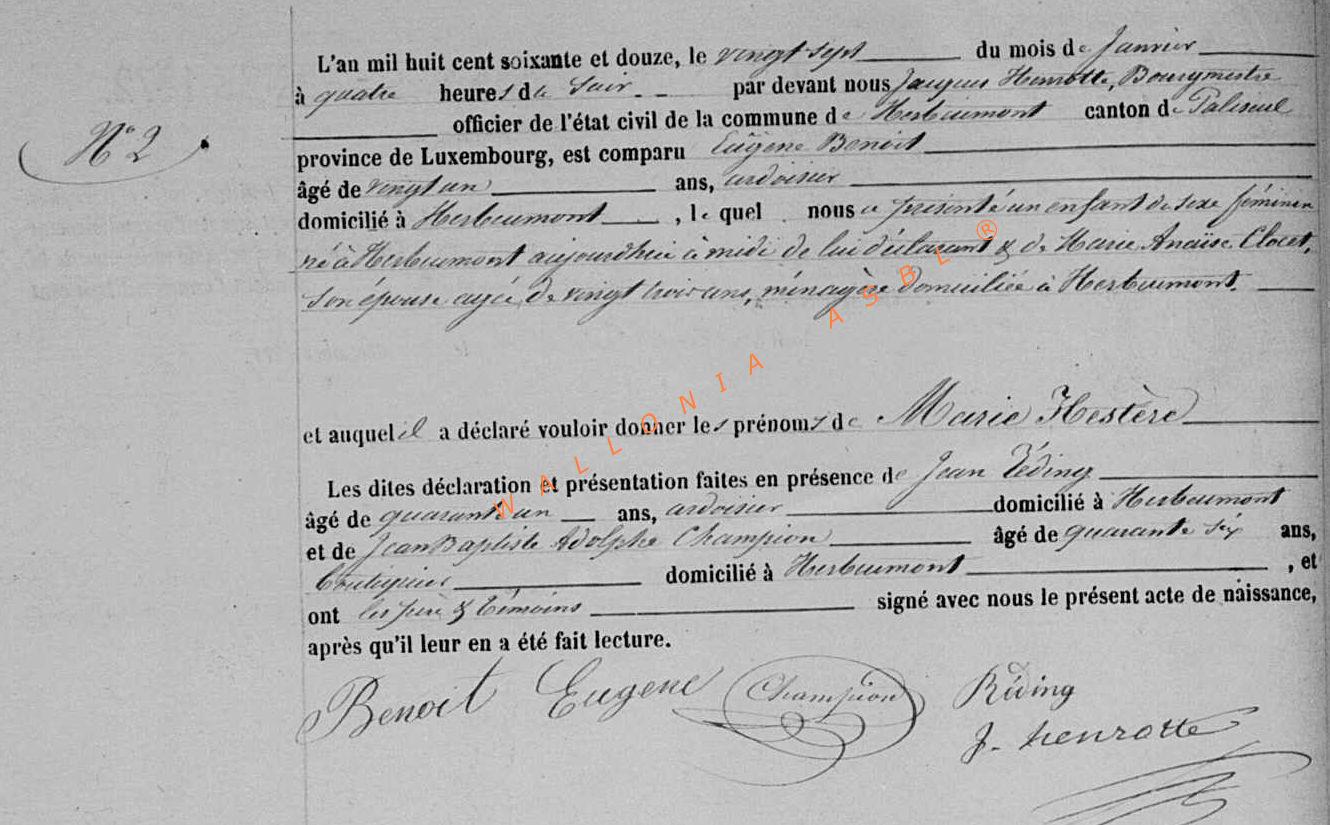 L'an mil huit cent soixante et douze, le vingt sept du mois de Janvier
à quatre heures du Soir par devant nous Jacques Henrotte, Bourgmestre
N° 2
officier de l'état civil de la commune de Herbeumont canton de Paliseul
province de Luxembourg, est comparu Eugène Benoit
âgé de vingt un ans, ardoisier
domicilié à Herbeumont, le quel nous a présenté un enfant de sexe féminin
né à Herbeumont aujourdhui à midi de lui déclarant & de Marie Anaïse Clocet,
son épouse agée de vingt trois ans, ménagère domiciliée à Herbeumont.
et auquel il a déclaré vouloir donner les prénoms de Marie Hestère
Les dites déclaration et présentation faites en présence de Jean
âgé de quarante un ans, ardoisier domicilié à Herbeumont
et de Jean Baptiste Adolphe Champion âgé de quarante six ans,
boutiquier domicilié à Herbeumont, et
ont les père & témoins signé avec nous le présent acte de naissance,
après qu'il leur en a été fait lecture.
Benoit Eugene Champion Réding
J. henrotte
WALLONIA ASBL ®